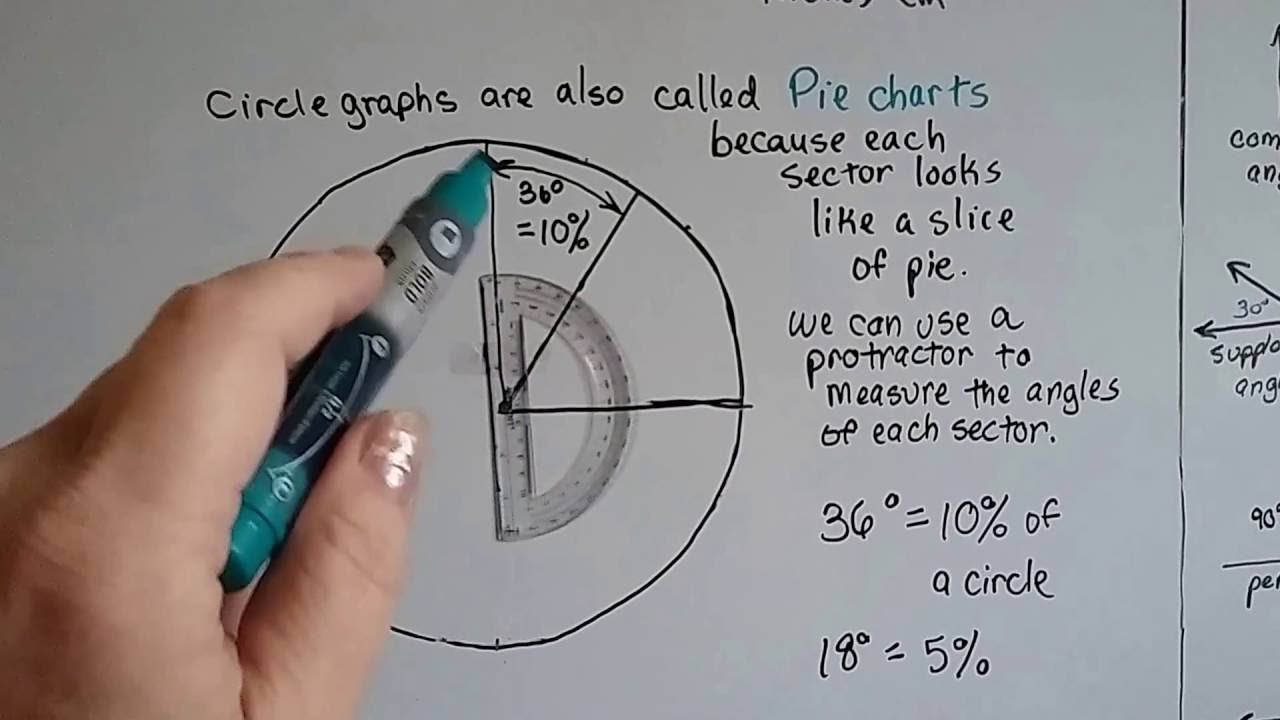 Circle graphs are also called Pie charts
because each
sector looks
like a slice
of pie.
36°
=10%
we can use a
protractor to
measure the angles
of each sector.
36° = 10% of
a circle
18° = 5%
30°
90°